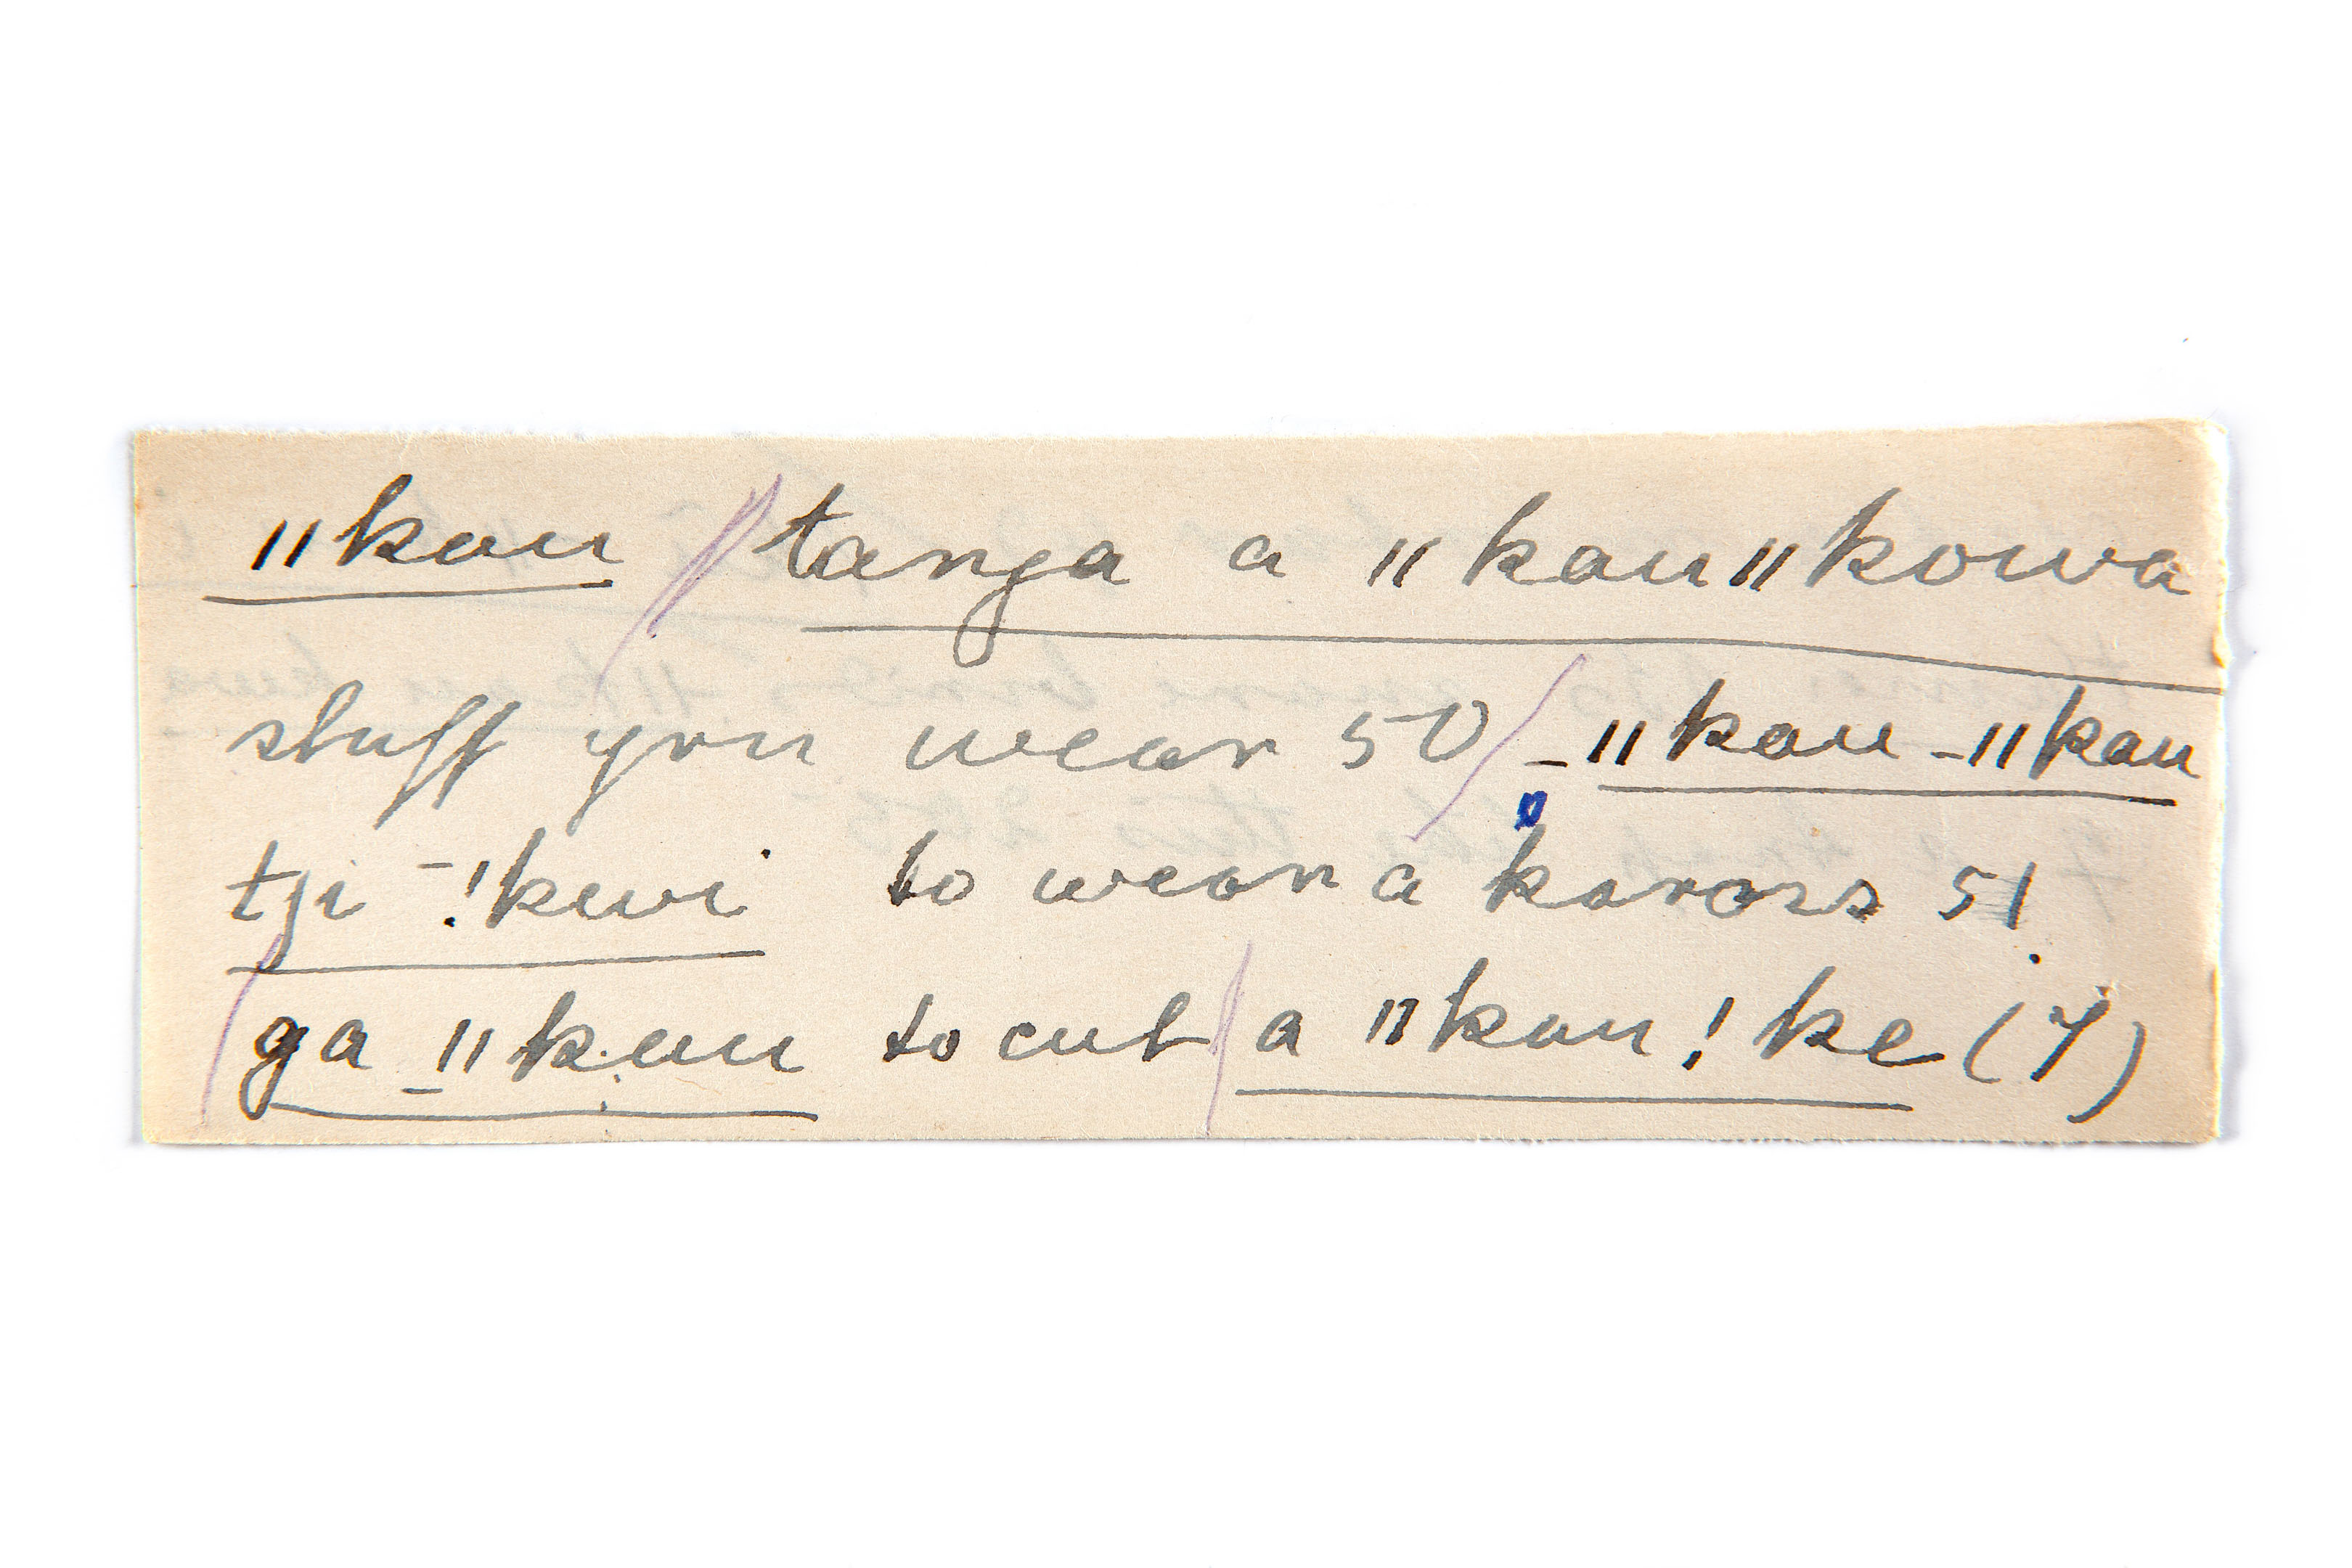 ǁkau / tanga a ǁkauǁkowa
stuff you wear 50 / _ǁkau_ǁkau
tji ¯!kewi to wear a kaross 51.
ga _ǁkau to cut / a ǁkau!ke (7)